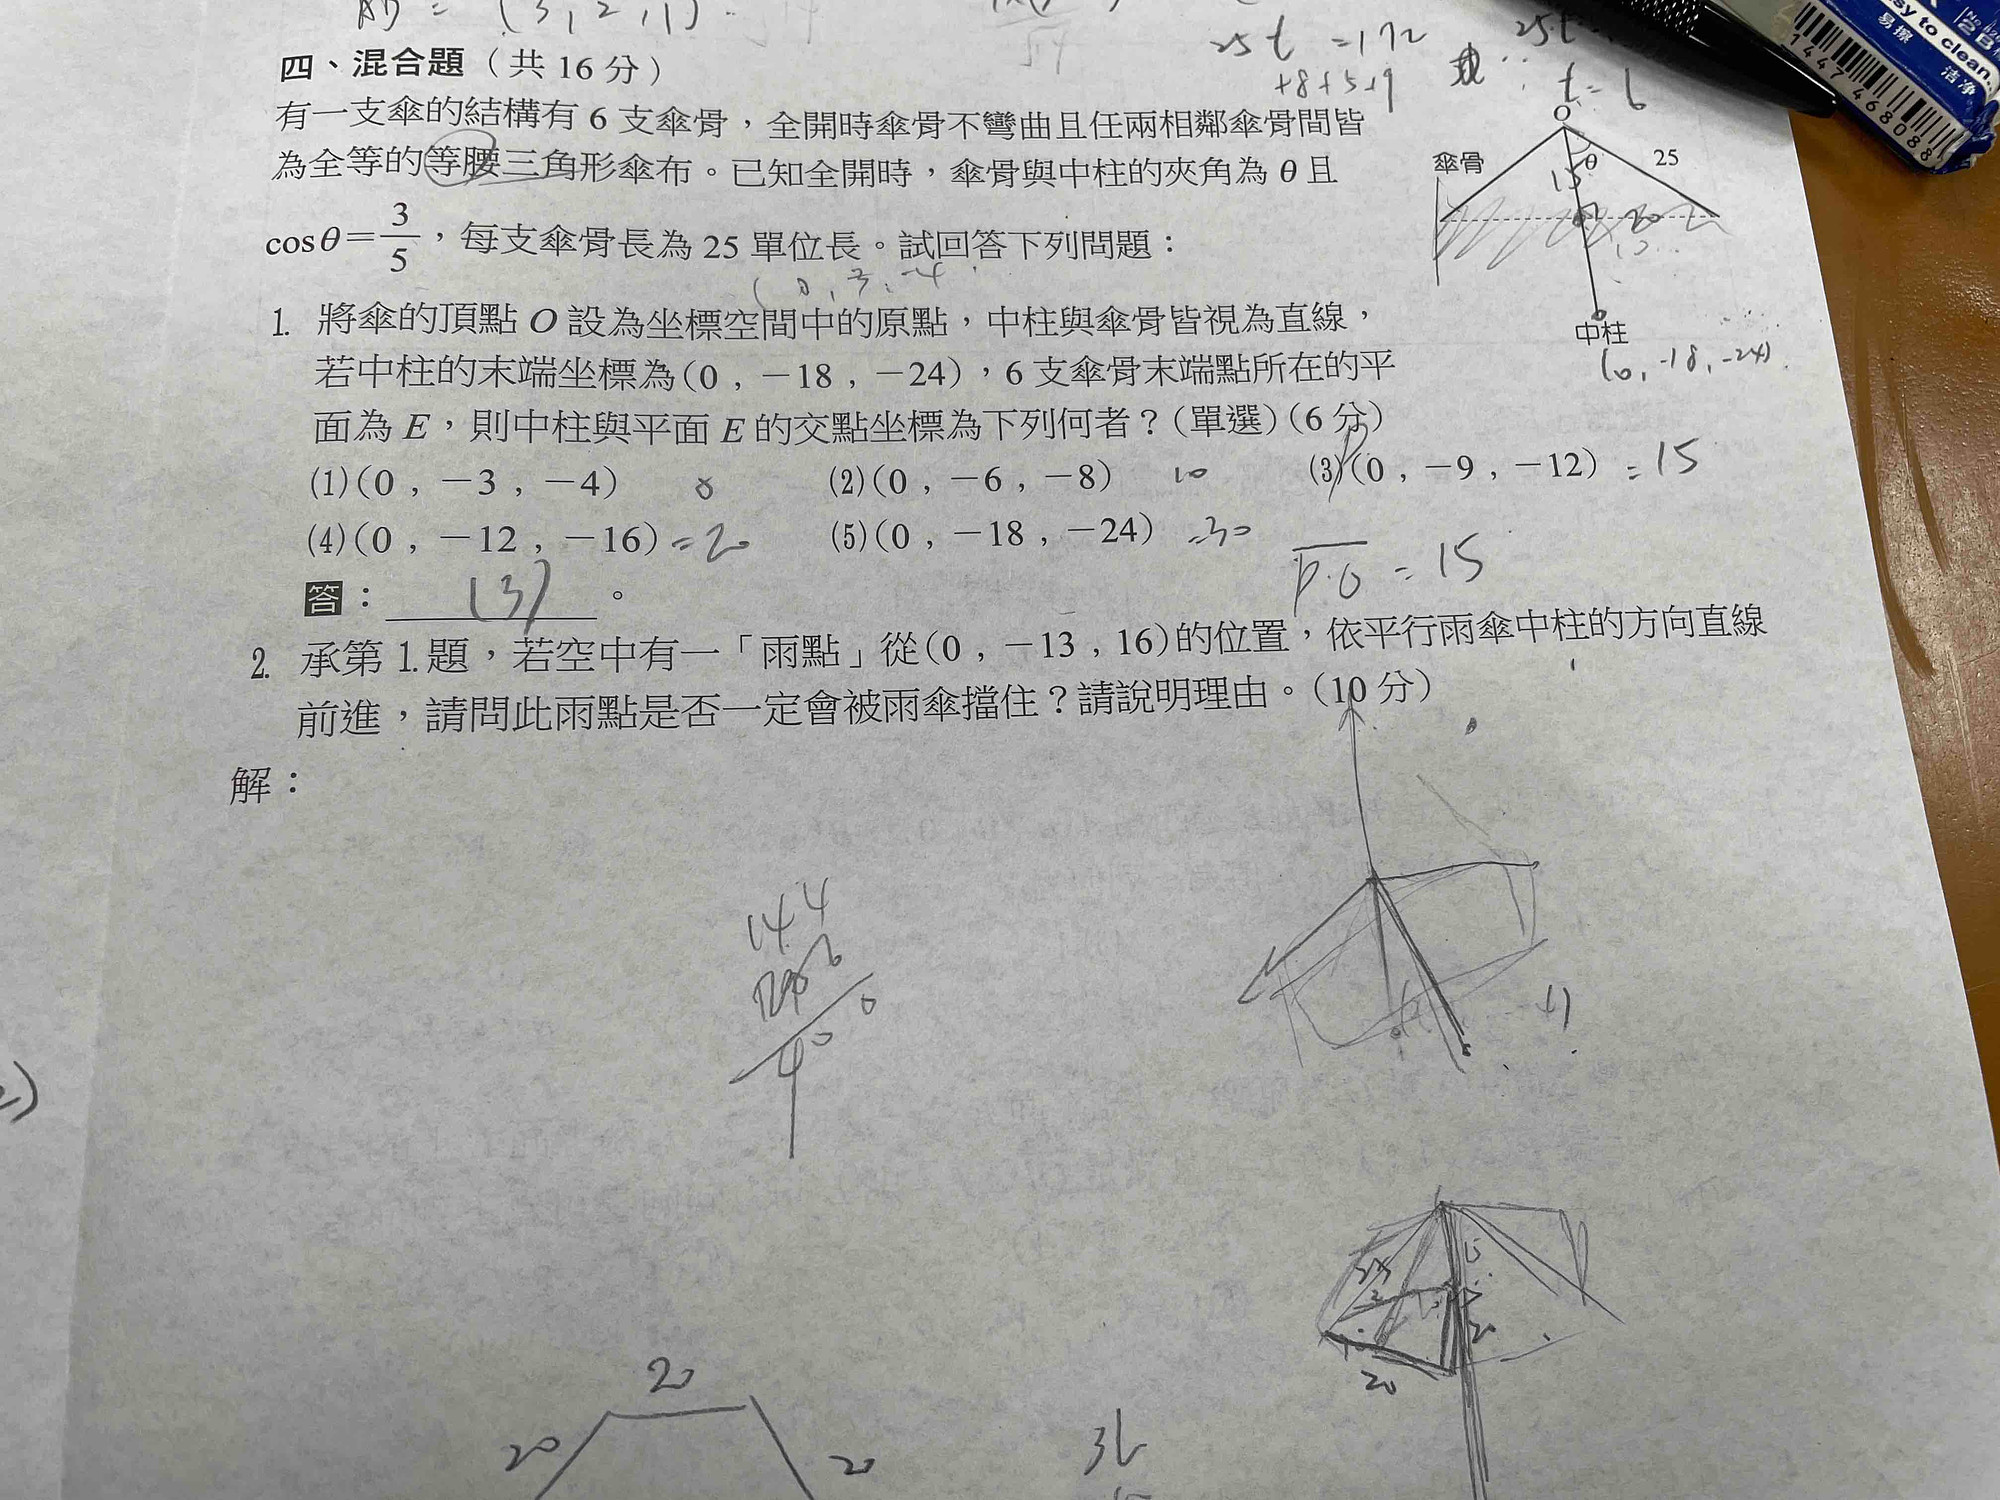 = (3, 2, 1)
25t = 172
+8+5+9
25t
t = 6
easy to clean.
易擦
潔净
61447 46808
四、混合題（共 16 分）
有一支傘的結構有 6 支傘骨，全開時傘骨不彎曲且任兩相鄰傘骨間皆
為全等的等腰三角形傘布。已知全開時，傘骨與中柱的夾角為 θ 且
cosθ=3/5，每支傘骨長為 25 單位長。試回答下列問題：
O
傘骨
θ
25
15
20
中柱
(0, -18, -24)
(0, -3, -4
1. 將傘的頂點 O 設為坐標空間中的原點，中柱與傘骨皆視為直線，
若中柱的末端坐標為(0，－18，－24)，6 支傘骨末端點所在的平
面為 E，則中柱與平面 E 的交點坐標為下列何者？(單選)(6 分)
(1)(0，－3，－4)
(2)(0，－6，－8) 10
(3)(0，－9，－12) = 15
(4)(0，－12，－16) = 20
(5)(0，－18，－24) =30
答： (3) 。
PO = 15
2. 承第 1.題，若空中有一「雨點」從(0，－13，16)的位置，依平行雨傘中柱的方向直線
前進，請問此雨點是否一定會被雨傘擋住？請說明理由。(10 分)
解：
144
400
20
20
20
20
20